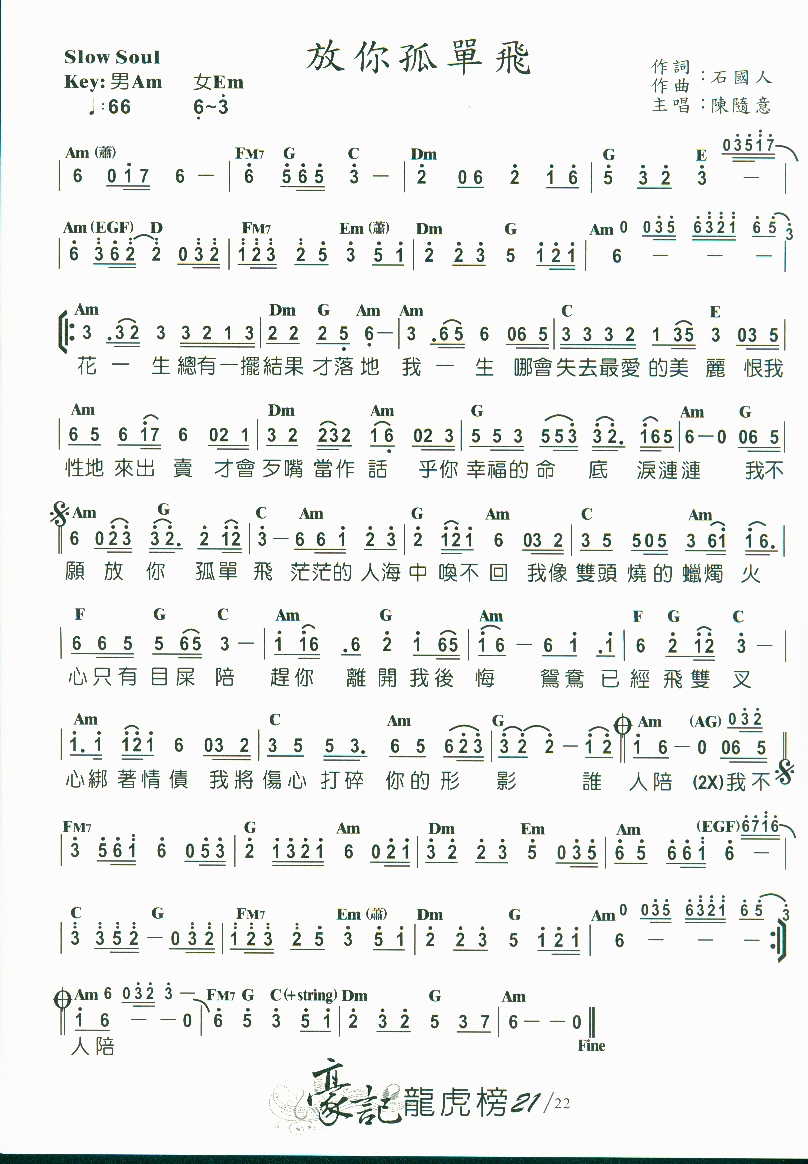 放你孤單飛
Slow Soul
Key: 男Am 女Em
♩:66 6~3
作詞
作曲 : 石國人
主唱 : 陳隨意
Am (蕭) FM7 G C Dm G E 03517
6 017 6 — | 6 565 3 — | 2 06 2 16 | 5 32 3 —
Am (EGF) D FM7 Em (蕭) Dm G Am 0 035 6321 65 3
6 362 2 032 | 123 25 3 51 | 2 23 5 121 | 6 — — —
Am Dm G Am Am C E
3 .32 3 3213 | 22 25 6 — | 3 .65 6 065 | 3332 135 3 035
花一生總有一擺結果才落地我一生哪會失去最愛的美麗恨我
Am Dm Am G Am G
65 617 6 021 | 32 232 16 023 | 553 553 32. 165 | 6—0 065
性地來出賣才會歹嘴當作話乎你幸福的命底淚漣漣我不
Am G C Am G Am C Am
6 023 32. 212 | 3—661 23 | 2 121 6 032 | 35 505 361 16.
願放你孤單飛茫茫的人海中喚不回我像雙頭燒的蠟燭火
F G C Am G Am F G C
665 565 3— | 1 16 .6 2 165 | 16—61 .1 | 6 212 3—
心只有目屎陪趕你離開我後悔鴛鴦已經飛雙叉
Am C Am G Am (AG) 032
1.1 121 6 032 | 35 53. 65 623 | 322—12 | 16—0 065
心綁著情債我將傷心打碎你的形影誰人陪(2X)我不
FM7 G Am Dm Em Am (EGF) 6716
3 561 6 053 | 2 1321 6 021 | 32 23 5 035 | 65 661 6 —
C G FM7 Em (蕭) Dm G Am 0 035 6321 65 3
3 352—032 | 123 25 3 51 | 2 23 5 121 | 6 — — —
Am 6 032 3— FM7 G C (+string) Dm G Am
16——0 | 65 3 51 | 2 32 5 37 | 6——0
人陪
Fine
豪記龍虎榜21/22